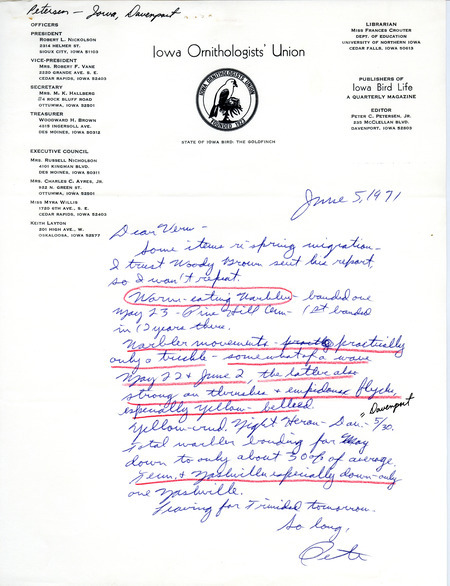 Petersen - Iowa, Davenport
OFFICERS
PRESIDENT
ROBERT L. NICKOLSON
2314 HELMER ST.
SIOUX CITY, IOWA 51103
VICE-PRESIDENT
MRS. ROBERT F. VANE
2320 GRANDE AVE., S. E.
CEDAR RAPIDS, IOWA 52403
SECRETARY
MRS. M. K. HALLBERG
ROCK BLUFF ROAD
OTTUMWA, IOWA 52501
TREASURER
WOODWARD H. BROWN
4815 INGERSOLL AVE.
DES MOINES, IOWA 50312
EXECUTIVE COUNCIL
MRS. RUSSELL NICHOLSON
4101 KINGMAN BLVD.
DES MOINES, IOWA 50311
MRS. CHARLES C. AYRES, JR.
932 N. GREEN ST.
OTTUMWA, IOWA 52501
MISS MYRA WILLIS
1720 6TH AVE., S. E.
CEDAR RAPIDS, IOWA 52403
KEITH LAYTON
201 HIGH AVE., W.
OSKALOOSA, IOWA 52577
Iowa Ornithologists' Union
IOWA ORNITHOLOGISTS' UNION
FOUNDED 1923
STATE OF IOWA BIRD: THE GOLDFINCH
LIBRARIAN
MISS FRANCES CROUTER
DEPT. OF EDUCATION
UNIVERSITY OF NORTHERN IOWA
CEDAR FALLS, IOWA 50613
PUBLISHERS OF
Iowa Bird Life
A QUARTERLY MAGAZINE
EDITOR
PETER C. PETERSEN, JR.
235 MCCLELLAN BLVD.
DAVENPORT, IOWA 52803
June 5, 1971
Dear Vern -
Some items re spring migration -
I trust Woody Brown sent his report,
so I won't repeat.
Worm-eating Warbler - banded one
May 23 - Pine Hill Cem - 1st banded
in 12 years there.
Warbler movements - practically
only a trickle - somewhat of a wave
May 22 & June 2, the latter also
strong on thrushes & empidonax flycs,
especially yellow-bellied.
= Davenport
Yellow-crnd. Night Heron - Dav. - 5/30.
Total warbler banding for May
down to only about 30% of average.
Tenn. & Nashville especially down - only
one Nashville.
Leaving for Trinidad tomorrow.
So long,
Pete